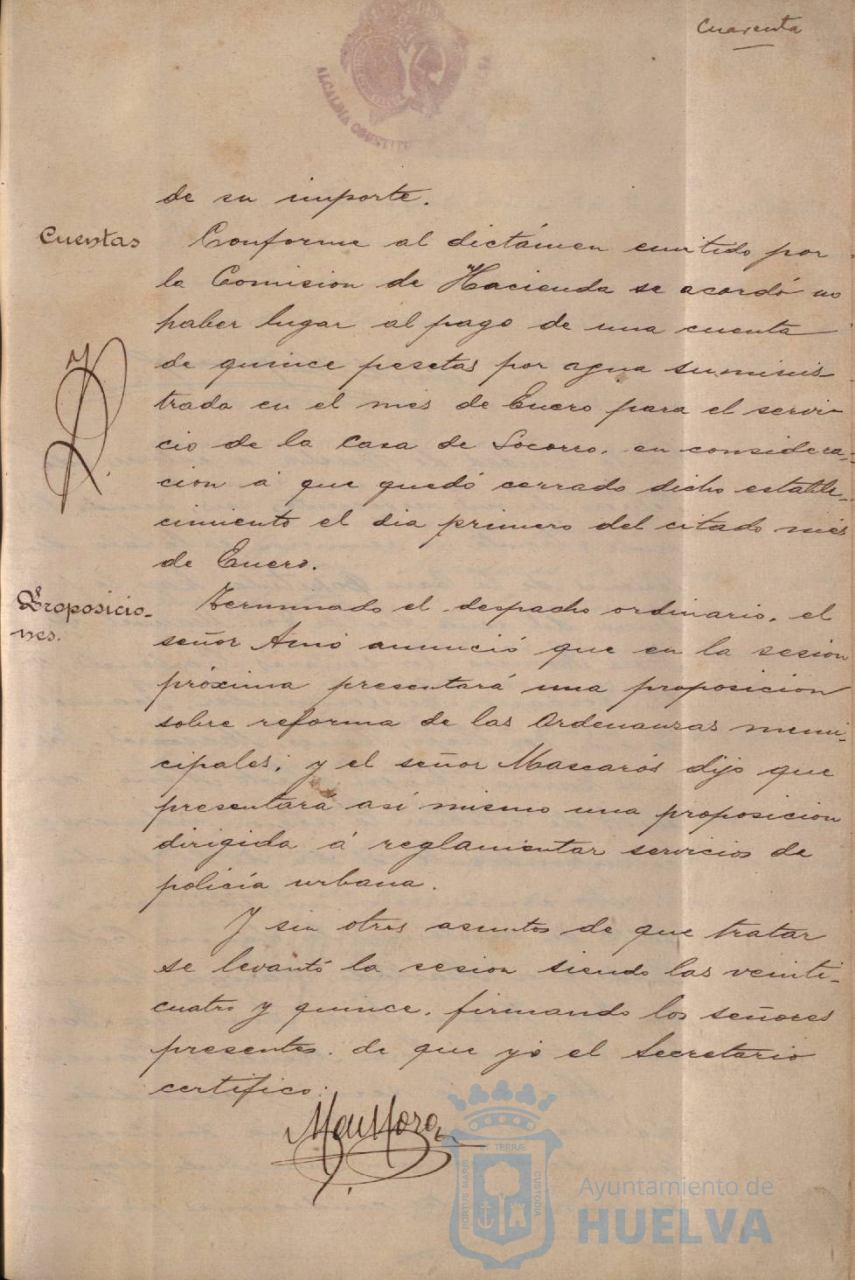 Cuarenta
ALCALDIA CONSTIT
de su importe.
Cuentas
Conforme al dictámen emitido por
la Comision de Hacienda se acordó no
haber lugar al pago de una cuenta
de quince pesetas por agua suminis
trada en el mes de Enero para el servi-
cio de la Casa de Socorro, en considera-
cion á que quedó cerrado dicho estable-
cimiento el dia primero del citado mes
de Enero.
Proposicio-
nes.
Terminado el despacho ordinario, el
señor Amo anunció que en la sesion
próxima presentará una proposicion
sobre reforma de las Ordenanzas muni-
cipales; y el señor Mascarós dijo que
presentará asi mismo una proposicion
dirigida á reglamentar servicios de
policía urbana.
Y sin otros asuntos de que tratar
se levantó la sesion siendo las veinti-
cuatro y quince, firmando los señores
presentes, de que yo el Secretario
certifico.
PORTUS MARIS ET TERRÆ CUSTODIA
Ayuntamiento de
HUELVA